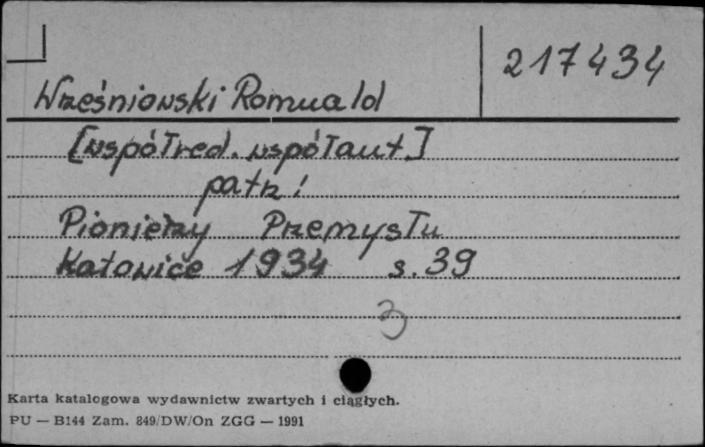 217434
Wrześniowski Romuald
[współred. współaut.]
patrz:
Pionierzy Przemysłu
Katowice 1934 s. 39
3
Karta katalogowa wydawnictw zwartych i ciągłych.
PU — B144 Zam. 849/DW/On ZGG — 1991